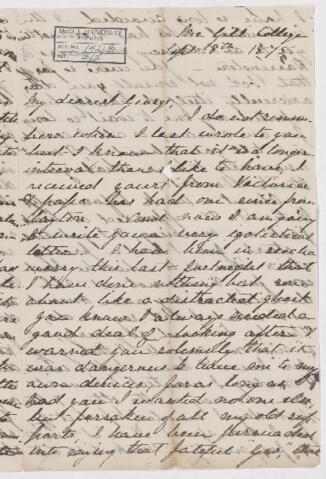 McGILL UNIVERSITY
ARCHIVES
ACC. NO.
REF.
McGill College
Sept 8th 1875
My dearest George,
I do not remem-
ber when I last wrote to you
but I know that it is a longer
interval than I like to have, I
received yours from Victoria
& papa has had one since from
. Now I am going
to write you a very egotistical
letter. I have been in such a
worry this last fortnight that
I have done nothing but run
about like a distracted ghost
you know I always needed a
good deal of looking after, I
warned you solemnly that it
was dangerous to leave me to my
own devices, for as long as I
had you I wanted no one else
but forsaken of all my old sup-
ports, I have been persuaded
into saying that fateful yes, that